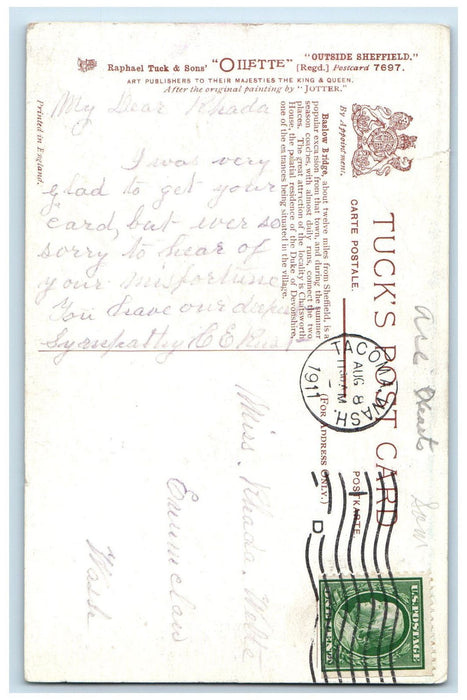 Raphael Tuck & Sons' "OILETTE" "OUTSIDE SHEFFIELD."
[Regd.] Postcard 7697.
ART PUBLISHERS TO THEIR MAJESTIES THE KING & QUEEN.
After the original painting by "JOTTER."
Printed in England.
My Dear Rhada
I was very
glad to get your
card, but ever so
sorry to hear of
your misfortune
You have our deepest
Sympathy
Baslow Bridge, about twelve miles from Sheffield, is a
popular excursion from that town, and during the summer
season coaches, with almost daily runs, connect the two
places. The great attraction of the locality is Chatsworth
House, the palatial residence of the Duke of Devonshire,
one of the entrances being situated in the village.
By Appointment.
CARTE POSTALE.
TUCK'S POST CARD
(FOR ADDRESS ONLY.)
POSTKARTE.
TACOMA, WASH.
AUG 8
1911
D
Miss. Rhada
Enumclaw
Wash
U.S. POSTAGE